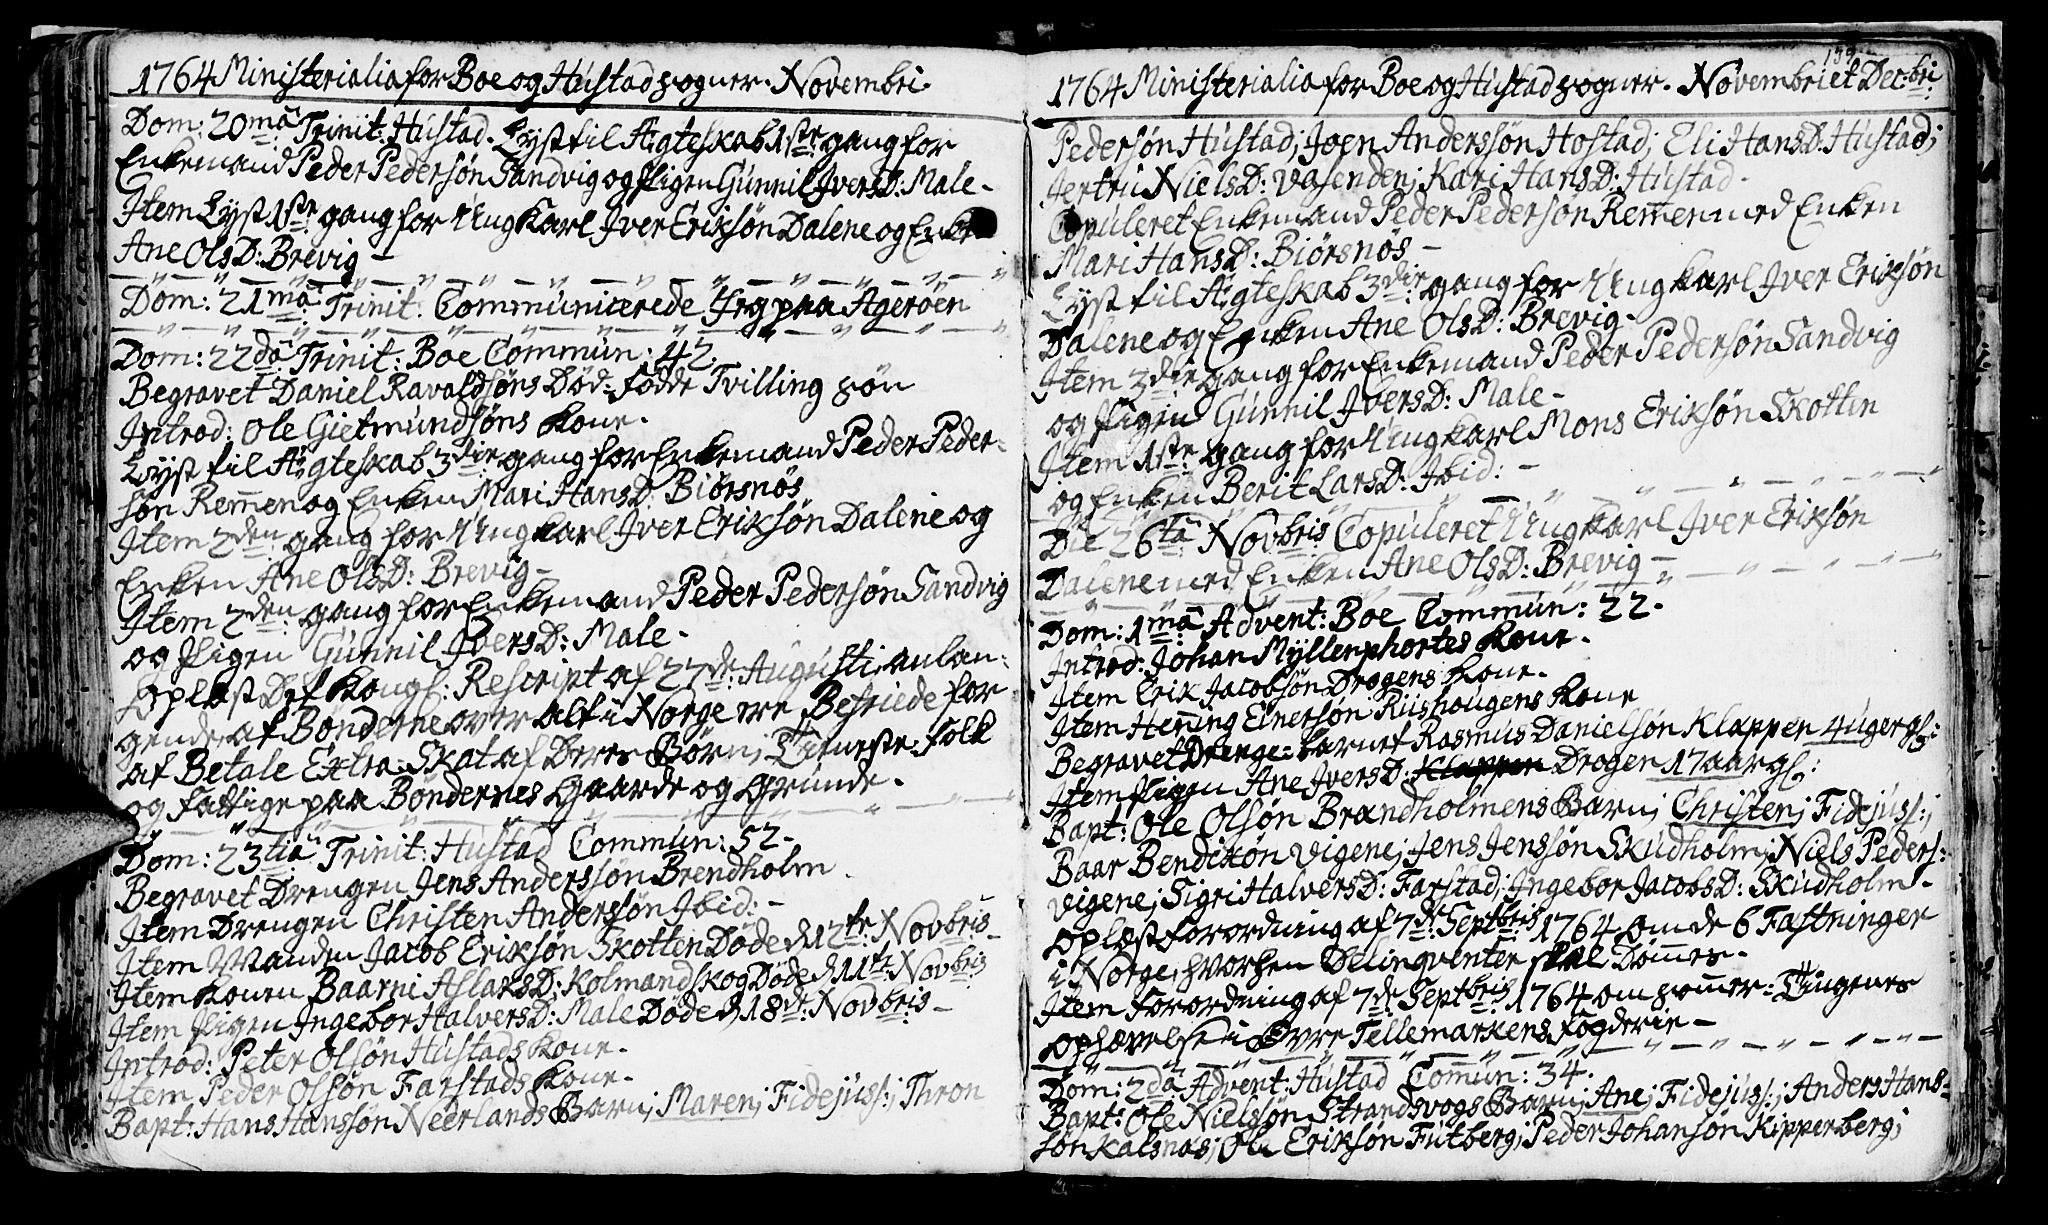 1764 Ministerialia for Boe og Hustad sogner. Novembri.
Dom: 20mâ Trinit: Hustad. Lyst til Ægteskab 1ste gang for
Enkemand Peder Pedersøn Sandvig og Pigen Gunnil IversD: Male.
Item Lyst 1ste gang for Ungkarl Iver Eriksøn Dalene og Enken
Ane OlsD: Brevig –
Dom: 21mâ Trinit: Communicerede Jeg paa Agerøen
Dom: 22dâ Trinit: Boe Commun: 42.
Begravet Daniel Ravaldsøns Død-fødde Tvilling søn
Introd: Ole Gietmundsøns Kone.
Lyst til Ægteskab 3die gang for Enkemand Peder Peder-
søn Rem̅en og Enken Mari HansD: Biørsnøs
Item 2den gang for Ungkarl Iver Eriksøn Dalene og
Enken Ane OlsD: Brevig –
Item 2den: gang for Enkemand Peder Pedersøn Sandvig
og Pigen Gunnil IversD: Male.
Oplæst Det Kongl: Rescript af 27de Augusti, anlan-
gende, at Bønderne over alt i Norge ere Befriede for
at Betale Extra-Skat af Deres Børn, Tieneste-folk
og fattige paa Bøndernes Gaarde og Grunde.
Dom: 23tiâ Trinit: Hustad Commun: 52.
Begravet Drengen Jens Anderssøn Brendholm.
Item Drengen Christen Anderssøn Ibid: –
Item Manden Jacob Eriksøn Skotten Døde d 12te Novbris
Item Konen Baarni AslaksD: Kolmandskog Døde d 11te Novbris
Item Pigen Ingebor HalversD: Male Døde d 18de: Novbris –
Introd: Peter Olsøn Hustads Kone.
Item Peder Olsøn Farstads Kone.
Bapt: Hans Hanssøn Neerlands Barn; Maren; Fidejuss:; Thron
1764 Ministerialia for Boe og Hustad sogner. Novembri et Decbri.
Pedersøn Hustad; Joen Anderssøn Hostad; Eli HansD: Hustad;
Jertru NielsD: Vasenden; Kari HansD: Hustad.
Copuleret Enkemand Peder Pedersøn Rem̅en med Enken
Mari HansD: Biørsnøs –
Lyst til Ægteskab 3die: gang for Ungkarl Iver Eriksøn
Dalene og Enken Ane OlsD: Brevig.
Item 3die gang for Enkemand Peder Pedersøn Sandvig
og Pigen Gunnil IversD: Male.
Item 1ste: gang for Ungkarl Mons Eriksøn Skotten
og Enken Berit LarsD: Ibid: –
Die 26tâ Novbris Copuleret Ungkarl Iver Eriksøn
Dalene med Enken Ane OlsD: Brevig –
Dom: 1mâ Advent: Boe Commun: 22.
Introd: Johan Myllenphortes Kone.
Item Erik Jacobsøn Drogens Kone.
Item Hen̅ing Einersøn Riishougens Kone
Begravet Drenge-barnet Rasmus Danielsøn Klappen 4 uger gl:
Item Pigen Ane IversD: Klappen Drogen 17 aar gl:
Bapt: Ole Olsøn Brandholmens Barn; Christen; Fidejuss:;
Baar Bendixøn Vigene; Jens Jenssøn Skudholm; Niels Peders:
Vigene; Sigri HalversD: Farstad; Ingebor JacobsD: Skudholm.
Oplæst forordning af 7de Septbris 1764 om de 6 Fæstninger
i Norge, hvorhen Delinqventer skal Døm̅es.
Item forordning af 7de Septbris 1764 om som̅er-Tingenes
ophævelse i Øvre Tellemarkens fogderie –
Dom: 2dâ Advent: Hustad Com̅un: 34.
Bapt: Ole Nielssøn Strandsvogs Barn; Ane; Fidejuss:; Anders Hans-
søn Kalsnøs; Ole Eriksøn Futberg; Peder Johansøn Kipperberg;